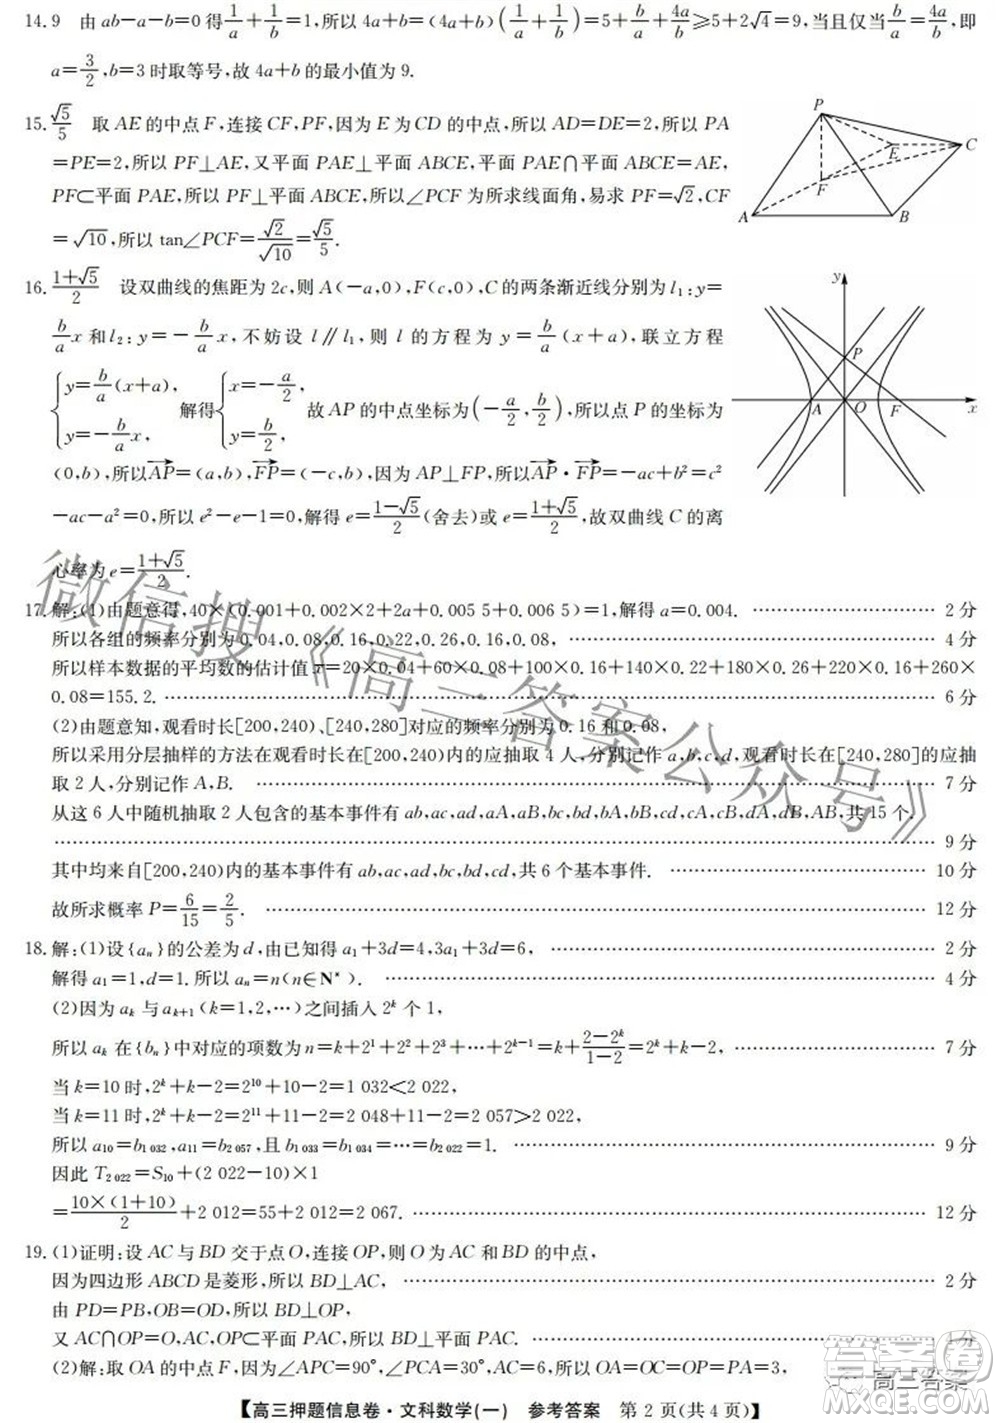 14. 9　由 ab−a−b=0 得 1/a+1/b=1,所以 4a+b=(4a+b)(1/a+1/b)=5+b/a+4a/b⩾5+2√4=9,当且仅当 b/a=4a/b,即
a=3/2,b=3 时取等号,故 4a+b 的最小值为 9.
15. √5/5　取 AE 的中点 F,连接 CF,PF,因为 E 为 CD 的中点,所以 AD=DE=2,所以 PA
=PE=2,所以 PF⊥AE,又平面 PAE⊥平面 ABCE,平面 PAE∩平面 ABCE=AE,
PF⊂平面 PAE,所以 PF⊥平面 ABCE,所以∠PCF 为所求线面角,易求 PF=√2,CF
=√10,所以 tan∠PCF=√2/√10=√5/5.
P
E
C
F
A
B
16. (1+√5)/2　设双曲线的焦距为 2c,则 A(−a,0),F(c,0),C 的两条渐近线分别为 l₁:y=
b/a x 和 l₂:y=−b/a x,不妨设 l∥l₁,则 l 的方程为 y=b/a(x+a),联立方程
{y=b/a(x+a), y=−b/a x, 解得{x=−a/2, y=b/2, 故 AP 的中点坐标为(−a/2,b/2),所以点 P 的坐标为
(0,b),所以AP→=(a,b),FP→=(−c,b),因为 AP⊥FP,所以AP→·FP→=−ac+b²=c²
−ac−a²=0,所以 e²−e−1=0,解得 e=(1−√5)/2(舍去)或 e=(1+√5)/2,故双曲线 C 的离
心率为 e=(1+√5)/2.
y
P
A
O
F
x
17. 解:(1)由题意得,40×(0.001+0.002×2+2a+0.005 5+0.006 5)=1,解得 a=0.004. ……… 2 分
所以各组的频率分别为 0.04,0.08,0.16,0.22,0.26,0.16,0.08, ……… 4 分
所以样本数据的平均数的估计值 x̄=20×0.04+60×0.08+100×0.16+140×0.22+180×0.26+220×0.16+260×
0.08=155.2. ……… 6 分
(2)由题意知,观看时长[200,240)、[240,280]对应的频率分别为 0.16 和 0.08,
所以采用分层抽样的方法在观看时长在[200,240)内的应抽取 4 人,分别记作 a,b,c,d,观看时长在[240,280]的应抽
取 2 人,分别记作 A,B. ……… 7 分
从这 6 人中随机抽取 2 人包含的基本事件有 ab,ac,ad,aA,aB,bc,bd,bA,bB,cd,cA,cB,dA,dB,AB,共 15 个.
……… 9 分
其中均来自[200,240)内的基本事件有 ab,ac,ad,bc,bd,cd,共 6 个基本事件. ……… 10 分
故所求概率 P=6/15=2/5. ……… 12 分
18. 解:(1)设{aₙ}的公差为 d,由已知得 a₁+3d=4,3a₁+3d=6, ……… 2 分
解得 a₁=1,d=1.所以 aₙ=n(n∈N*). ……… 4 分
(2)因为 aₖ 与 aₖ₊₁(k=1,2,…)之间插入 2ᵏ 个 1,
所以 aₖ 在{bₙ}中对应的项数为 n=k+2¹+2²+2³+…+2ᵏ⁻¹=k+(2−2ᵏ)/(1−2)=2ᵏ+k−2, ……… 7 分
当 k=10 时,2ᵏ+k−2=2¹⁰+10−2=1 032<2 022,
当 k=11 时,2ᵏ+k−2=2¹¹+11−2=2 048+11−2=2 057>2 022,
所以 a₁₀=b₁ ₀₃₂,a₁₁=b₂ ₀₅₇,且 b₁ ₀₃₃=b₁ ₀₃₄=…=b₂ ₀₂₂=1. ……… 9 分
因此 T₂ ₀₂₂=S₁₀+(2 022−10)×1
=10×(1+10)/2+2 012=55+2 012=2 067. ……… 12 分
19. (1)证明:设 AC 与 BD 交于点 O,连接 OP,则 O 为 AC 和 BD 的中点,
因为四边形 ABCD 是菱形,所以 BD⊥AC, ……… 2 分
由 PD=PB,OB=OD,所以 BD⊥OP,
又 AC∩OP=O,AC,OP⊂平面 PAC,所以 BD⊥平面 PAC. ……… 4 分
(2)解:取 OA 的中点 F,因为∠APC=90°,AC=6,所以 OA=OP=PA=3,
【高三押题信息卷·文科数学(一)　参考答案　第 2 页(共 4 页)】
微信搜《高三答案公众号》
答案圈
高三答案